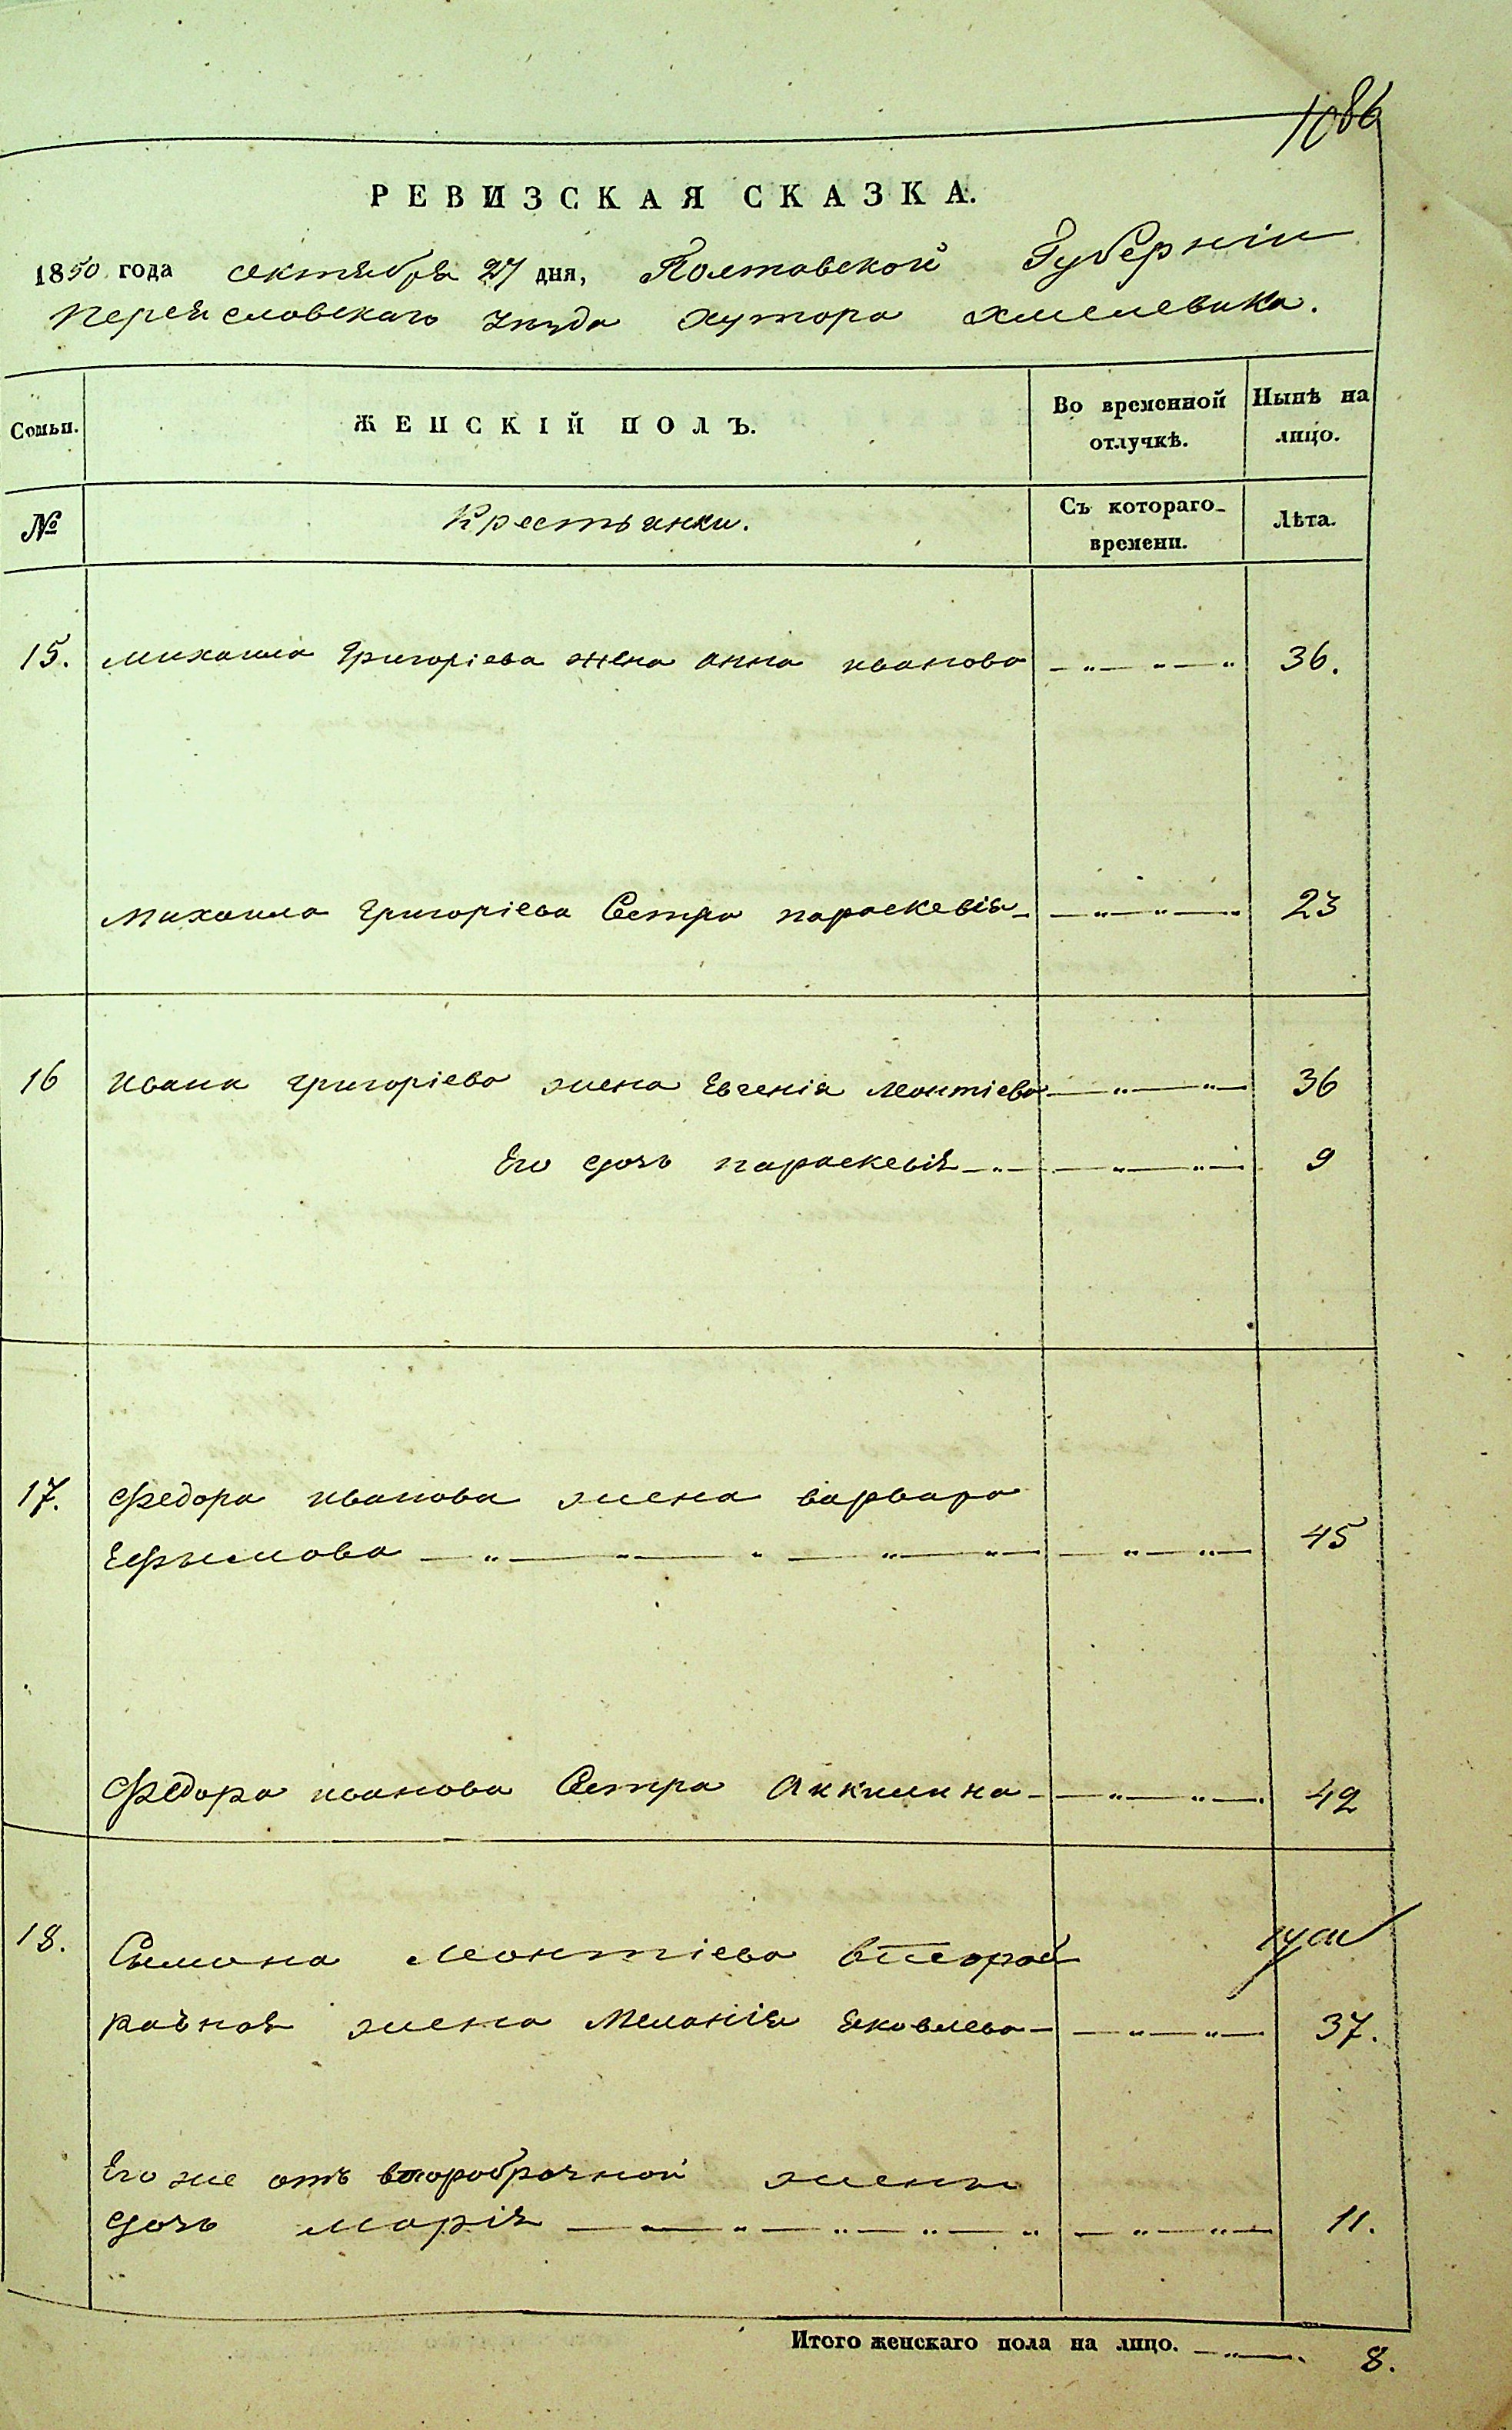 1086
РЕВИЗСКАЯ СКАЗКА.
1850 года октября 27 дня, Полтавской Губерніи
Переяславскаго уезда хутора хмелевика.
Семьи. ЖЕНСКІЙ ПОЛЪ. Во временной отлучкѣ. Нынѣ на лицо.
№ Крестьянки. Съ котораго времени. Лѣта.
15. Михаила Григоріева жена анна иванова 36.
Михаила григоріева Сестра параскевія 23
16 ивана григоріева жена Евгенія леонтіева 36
Его дочь параскевія 9
17. Федора иванова жена варвара
Ефимова 45
Федора иванова Сестра Акилина 42
18. Симона леонтіева второб
рачная жена меланія яковлева 37.
Его же отъ второбрачной жены
дочь марія 11.
Итого женскаго пола на лицо. 8.